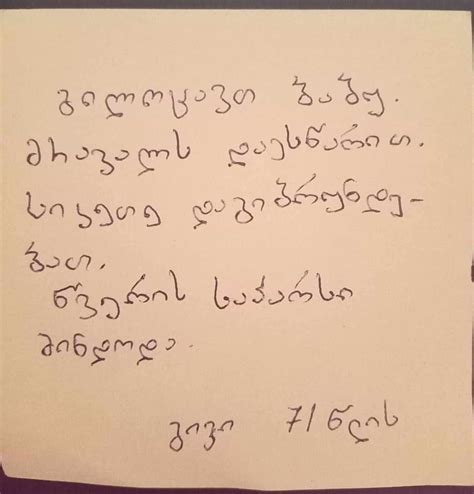 გილოცავთ ბაბუ.
მრავალს დაესწარით.
სიკეთე დაგიბრუნდე-
ბათ.
წვერის საპარსი
მინდოდა.
გივი 71 წლის